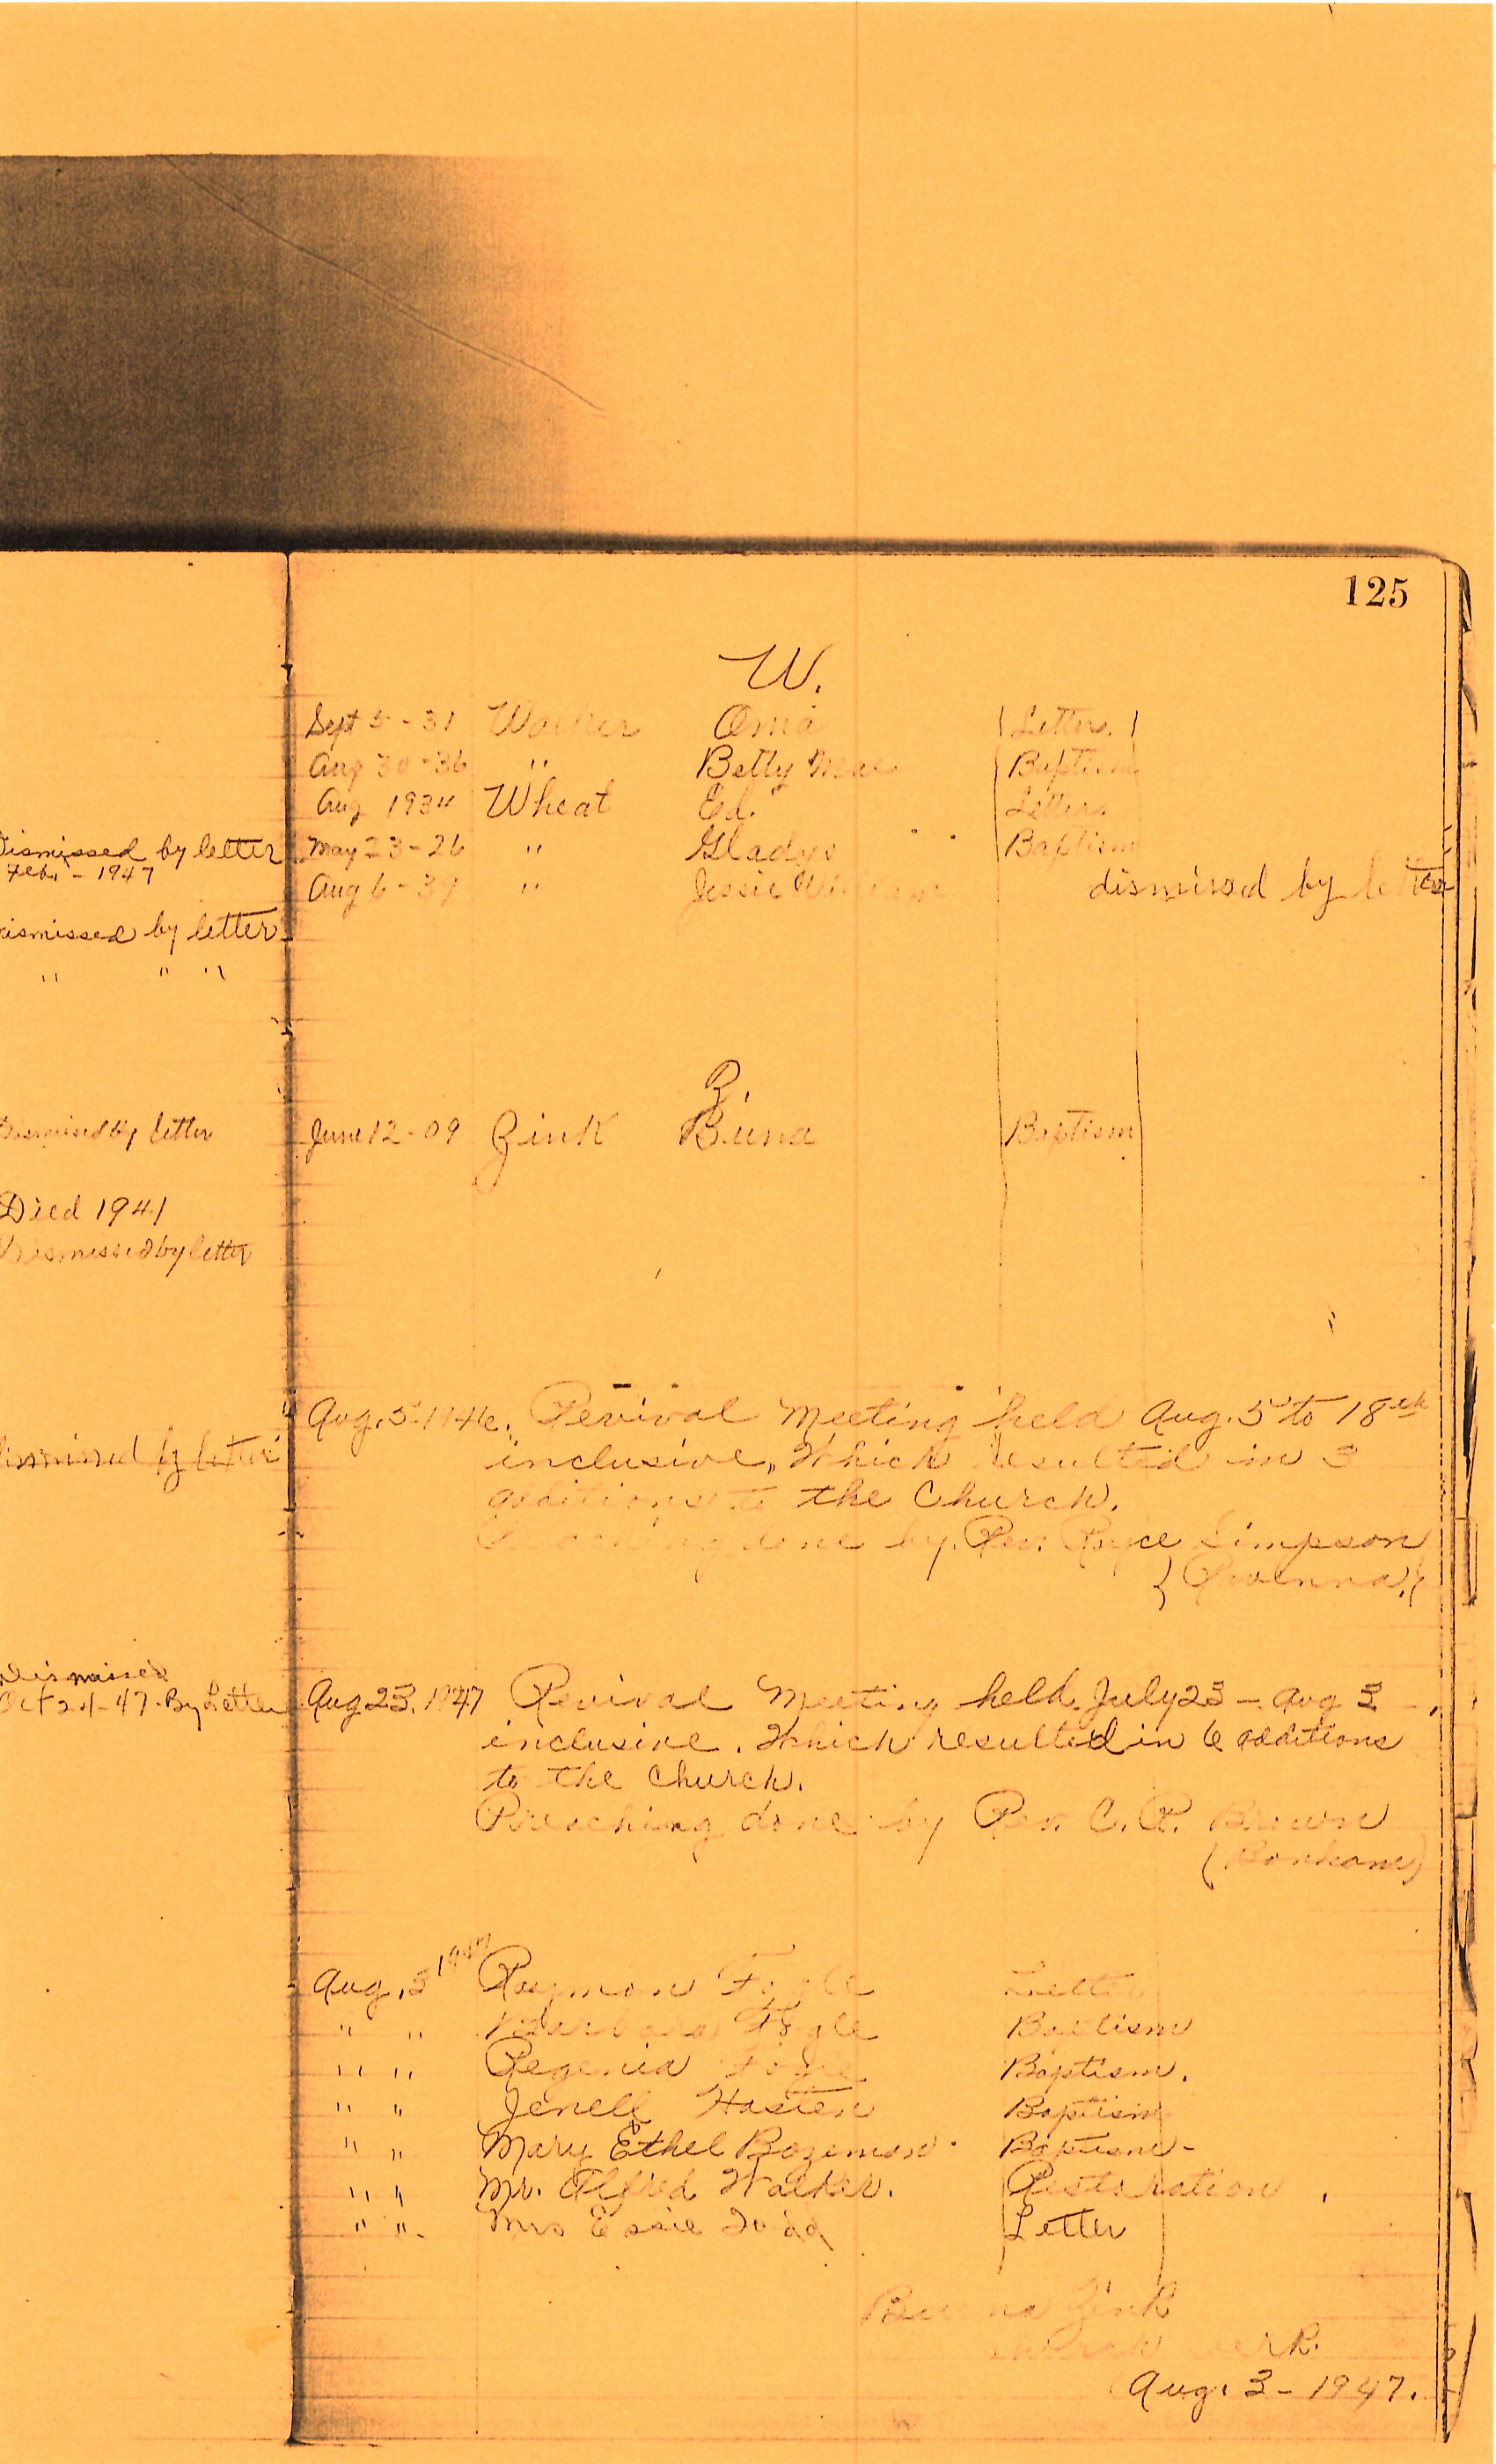 125
W.
Sept 5-31 Walker Oma Letter.
Aug 30-36 " Betty Mae Baptism
Aug 1934 Wheat Ed. Letter
Dismissed by letter May 23-26 " Gladys Baptism
Feb. - 1947
Aug 6-39 " Jessie William dismissed by letter
ismissed by letter
" " "
Z.
Dismissed by letter June 12-09 Zink Buna Baptism
Died 1941
Dismissed by letter
Aug. 5-1946. Revival Meeting held Aug. 5 to 18th
dismissed by letter inclusive, Which resulted in 3
additions to the Church.
Preaching done by. Rev. Royce Simpson
{Ravenna.}
Dismissed
Oct 21-47-By Letter Aug 23, 1947 Revival Meeting held July 23 - Aug 3 -
inclusive. Which resulted in 6 additions
to the Church.
Preaching done by Rev. C. R. Brown
(Bonham)
Aug. 3 1947 Raymon Fogle Letter
" " Barbara Fogle Baptism
" " Regenia Fogle Baptism.
" " Jenell Hasten Baptism
" " Mary Ethel Bozeman. Baptism-
" " Mr. Alfred Walker. Restoration.
" ". Mrs Essie Todd Letter
Zink
Church Clerk.
Aug. 3-1947.